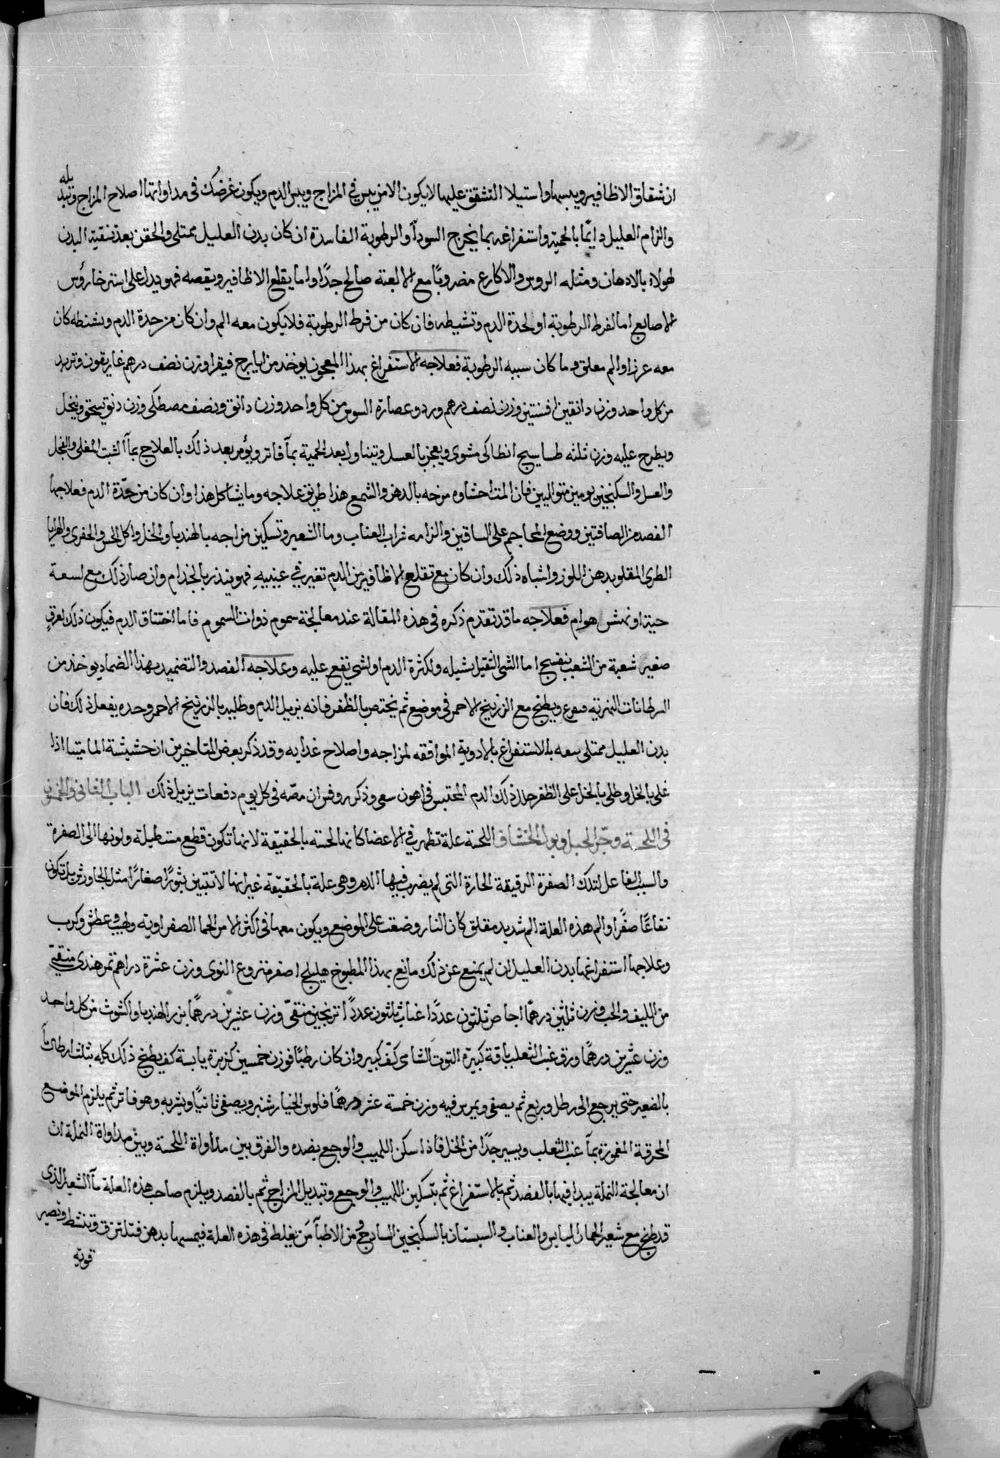 ان شقاق الاظافير ويبسها واستيلا التشقق عليها لا يكون الا من يبس في المزاج ويبس الدم ويكون غرضك في مداواتها اصلاح المزاج وتبديله
والزام العليل دايمًا بالحمية واستفراغه بما يخرج السودآ والرطوبة الفاسدة ان كان بدن العليل ممتلى والحقن بعد تنقية البدن
بالادهان ومثله الروس والاكارع مضروبًا مع الالعبة صالح جدًا واما يقلع الاظافير ويقصه فهو يدل على استرخا رؤس
الاصابع اما لفرط الرطوبة او لحدة الدم وتشيطه فان كان من فرط الرطوبة فلا يكون معه الم وان كان من حدة الدم وتشيطه كان
معه والم مقلق فما كان سببه الرطوبة فعلاجه الاستفراغ بهذا المعجون يوخذ من ايارج فيقرا وزن نصف درهم غاريقون وتربد
من كل واحد وزن دانقين افسنتين وزن نصف درهم ورد وعصارة السوس من كل واحد وزن دانق ونصف مصطكى وزن دانق يسحق وينخل
ويطرح عليه وزن ثلثه انطاكي مشوى ويعجن بالعسل ويتناول بعد الحمية بمآ فاتر ويؤمر بعد ذلك بالعلاج بمآ الشبت المغلى والفجل
والعسل والسكنجبين يومين متواليين فان احشاوه مرخه بالدهن والشمع هذا طريق علاجه وما يشاكل هذا وان كان من حدّة الدم فعلاجها
الفصد من الصافنين ووضع المحاجم على الساقين والزامه شراب العناب وما الشعير وتسكين مزاجه بالهندبا والخل واكل الخس
الطرى المقلو بدهن اللوز واشباه ذلك وان كان مع تقلع الاظافير من الدم تغير في عينيه فهو ينذر بالجذام وان صار ذلك مع لسعة
حية او نهش هوام فعلاجه ما قد تقدم ذكره في هذه المقالة عند معالجة سموم ذوات السموم فاما اختناق الدم فيكون ذلك لعرق
صغير شعبة من الشعب ينفسخ اما الشى الثقيل يشيله ولكثرة الدم او لشي يقع عليه وعلاجه الفصد والتضميد بهذا الضماد يوخذ من
السرطانات النهرية ويطبخ مع الزرنيخ الاحمر في موضع ثم يختص بالظفر فانه يزيل الدم وطليه بالزرنيخ الاحمر وحده يفعل ذلك فان
بدن العليل ممتلى سعه بالاستفراغ بالادوية الموافقه لمزاجه واصلاح غدايه وقد ذكر بعض المتاخرين ان حشيشة الماميثا اذا
غلى بالخل وطلى بالخل على الظفر حلل ذلك الدم المحتبس في اهون سعى وذكر روفس ان مصّه في كل يوم دفعات يزيل ذلك الباب الثاني والخمسون
في اللحسة وحرّ الجبل وبول الخشاف اللحسة علة تظهر في الاعضا كانها لحسة بالحقيقة لانها تكون قطع مستطيلة ولونها الى الصفرة
والسبب الفاعل لتلك الصفرة الرقيقة الحارة التى لم يضرب فيها الدم وهى علة بالحقيقة غير انها لا تتبين بثورًا صغارًا مثل الجاورش بل تكون
نفاغًا صفرًا والم هذه العلة الم شديد مقلق كان النار وضعت على الموضع ويكون معها في اكثر الامر الحما الصفراوية ولهيب وعطش وكرب
وعلاجها استفراغ بدن العليل ان لم يمنع عن ذلك مانع بهذا المطبوخ هليلج اصفر منزوع النوى وزن عشرة دراهم تمر هندى منقّى
من الليف والحب وزن ثلثين درهمًا اجاص ثلثون عددًا عناب ثلثون عددًا ترنجبين منقّى وزن عشرين درهمًا بزر الهندبا واكشوث من كل واحد
وزن عشرين درهمًا ورق عنب الثعلب باقة كبيرة التوت الشامى كفّ كبير وان كان رطبًا فوزن خمسين كزبرة يابسة كف يطبخ ذلك كله بثلثة ارطال مآ
بالصغير حتى يرجع الى رطل وربع ثم يصفى ويمرس فيه وزن خمسة عشر درهمًا فلوس الخيارشنبر ويصفى ثانيًا ويشربه وهو فاتر ثم يلزم الموضع
الخرقة المغموزة بمآ عنب الثعلب ويسير جدًا من الخل فاذا سكن اللهيب والوجع بفصده والفرق بين مداواة اللحسة وبين مداواة النملة ان
ان معالجة النملة يبدا فيها بالفصد ثم بالاستفراغ ثم بتسكين اللهيب والوجع وتبديل المزاج ثم بالفصد ويلزم صاحب هذه العلة مآ الشعير الذى
قد طبخ مع شعير الهار اليابس والعناب والسبستان بالسكنجبين الساذج ومن الاطبآ من يغلط في هذه العلة فيمسحها بدهن فتلتزق وتتشيط وتصير
قوية